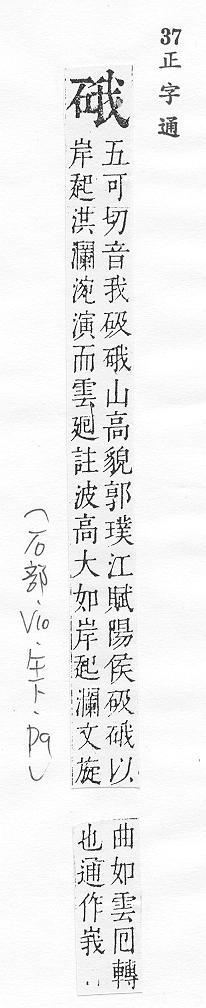 37正字通
硪
五可切音我砐硪山高貌郭璞江賦陽侯砐硪以
岸起洪瀾涴演而雲廻註波高大如岸起瀾文旋
曲如雲回轉
也通作峩..
(石部.V10.午下.P9)